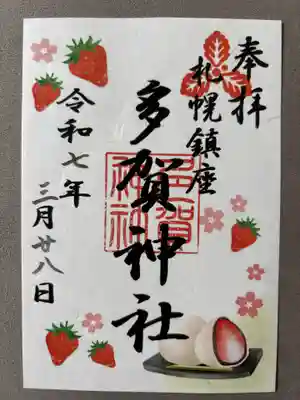 奉拝
札幌鎮座
多賀神社
多賀神社
令和七年
三月廿八日